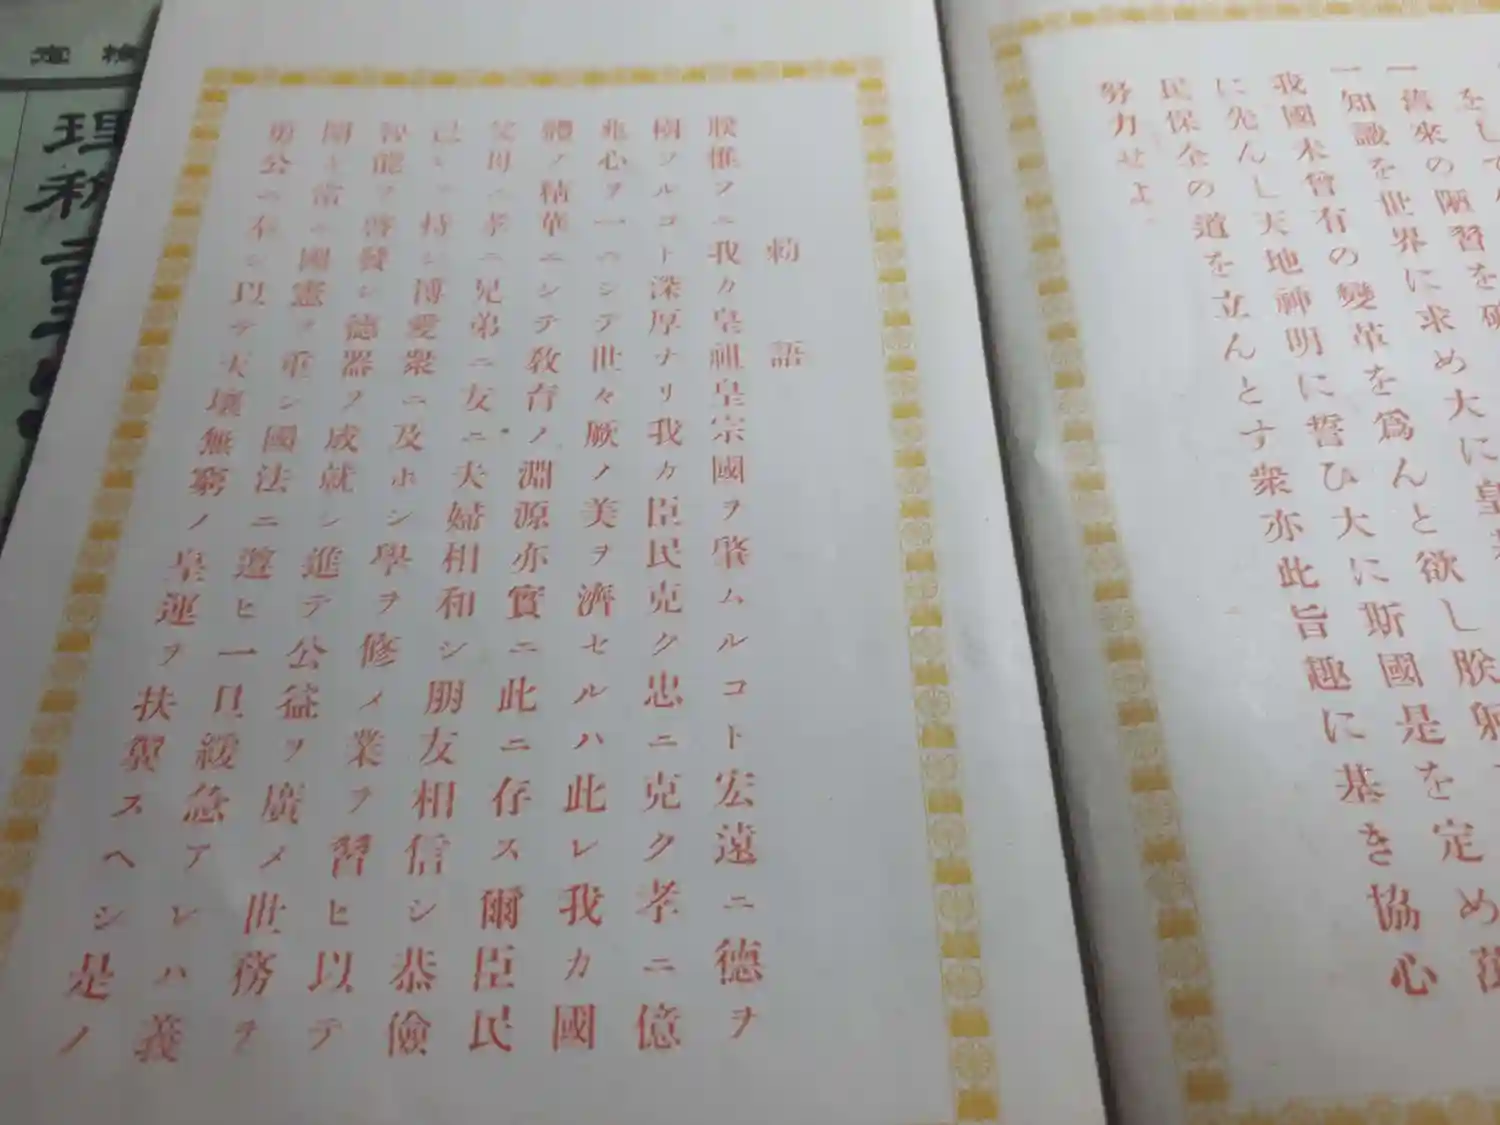 をして
一舊來の陋習を破
一知識を世界に求め大に皇
我國未曾有の變革を爲んと欲し朕躬
に先んし天地神明に誓ひ大に斯國是を定め萬
民保全の道を立んとす衆亦此旨趣に基き協心
努力せよ
勅語
朕惟フニ我カ皇祖皇宗國ヲ肇ムルコト宏遠ニ德ヲ
樹ツルコト深厚ナリ我カ臣民克ク忠ニ克ク孝ニ億
兆心ヲ一ニシテ世々厥ノ美ヲ濟セルハ此レ我カ國
體ノ精華ニシテ敎育ノ淵源亦實ニ此ニ存ス爾臣民
父母ニ孝ニ兄弟ニ友ニ夫婦相和シ朋友相信シ恭儉
己レヲ持シ博愛衆ニ及ホシ學ヲ修メ業ヲ習ヒ以テ
智能ヲ啓發シ德器ヲ成就シ進テ公益ヲ廣メ世務ヲ
開キ常ニ國憲ヲ重シ國法ニ遵ヒ一旦緩急アレハ義
勇公ニ奉シ以テ天壤無窮ノ皇運ヲ扶翼スヘシ是ノ
檢定
理